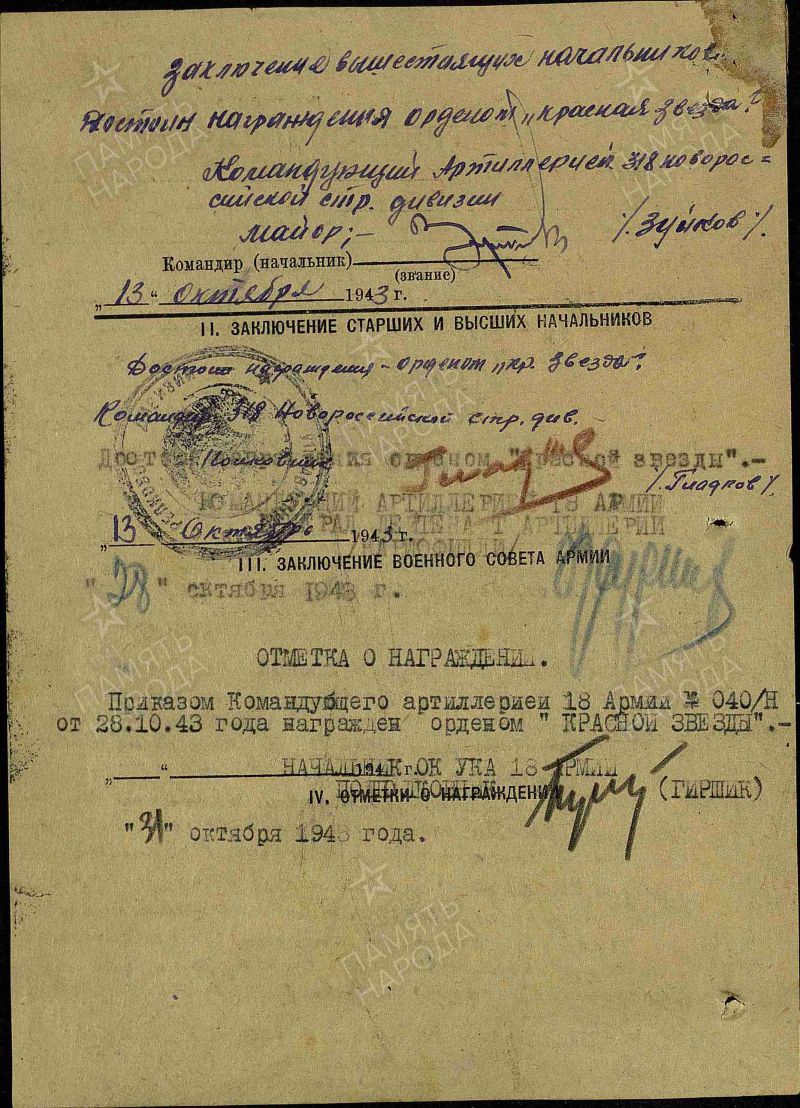 Заключение вышестаящих начальников
Достоин награждения орденом „красная звезда".
Командующий Артиллерией 318 новорос=
сийской стр. дивизии
майор;- /. Зуйков /.
Командир (начальник)
(звание)
„13" октября 1943 г.
II. ЗАКЛЮЧЕНИЕ СТАРШИХ И ВЫСШИХ НАЧАЛЬНИКОВ
Достоин награждения - орденом „кр. звезда".
Командир 318 Новороссийской стр. див.
Достоин награждения орденом "Красной звезды".-
Полковник /. Гладков /.
КОМАНДУЮЩИЙ АРТИЛЛЕРИЕЙ 18 АРМИИ
ГЕНЕРАЛ ЛЕЙТЕНАНТ АРТИЛЛЕРИИ
„13" Октябрь 1943 г.
III. ЗАКЛЮЧЕНИЕ ВОЕННОГО СОВЕТА АРМИИ
"28" октября 1943 г.
ОТМЕТКА О НАГРАЖДЕНИИ.
Приказом Командующего артиллерией 18 Армии № 040/Н
от 28.10.43 года награжден орденом " КРАСНОЙ ЗВЕЗДЫ".-
НАЧАЛЬНИК ОК УКА 18 АРМИИ
„ " 194 г.
ПОДПОЛКОВНИК (ГИРШИК)
IV. ОТМЕТКИ О НАГРАЖДЕНИИ
"31" октября 1943 года.
ПАМЯТЬ
НАРОДА